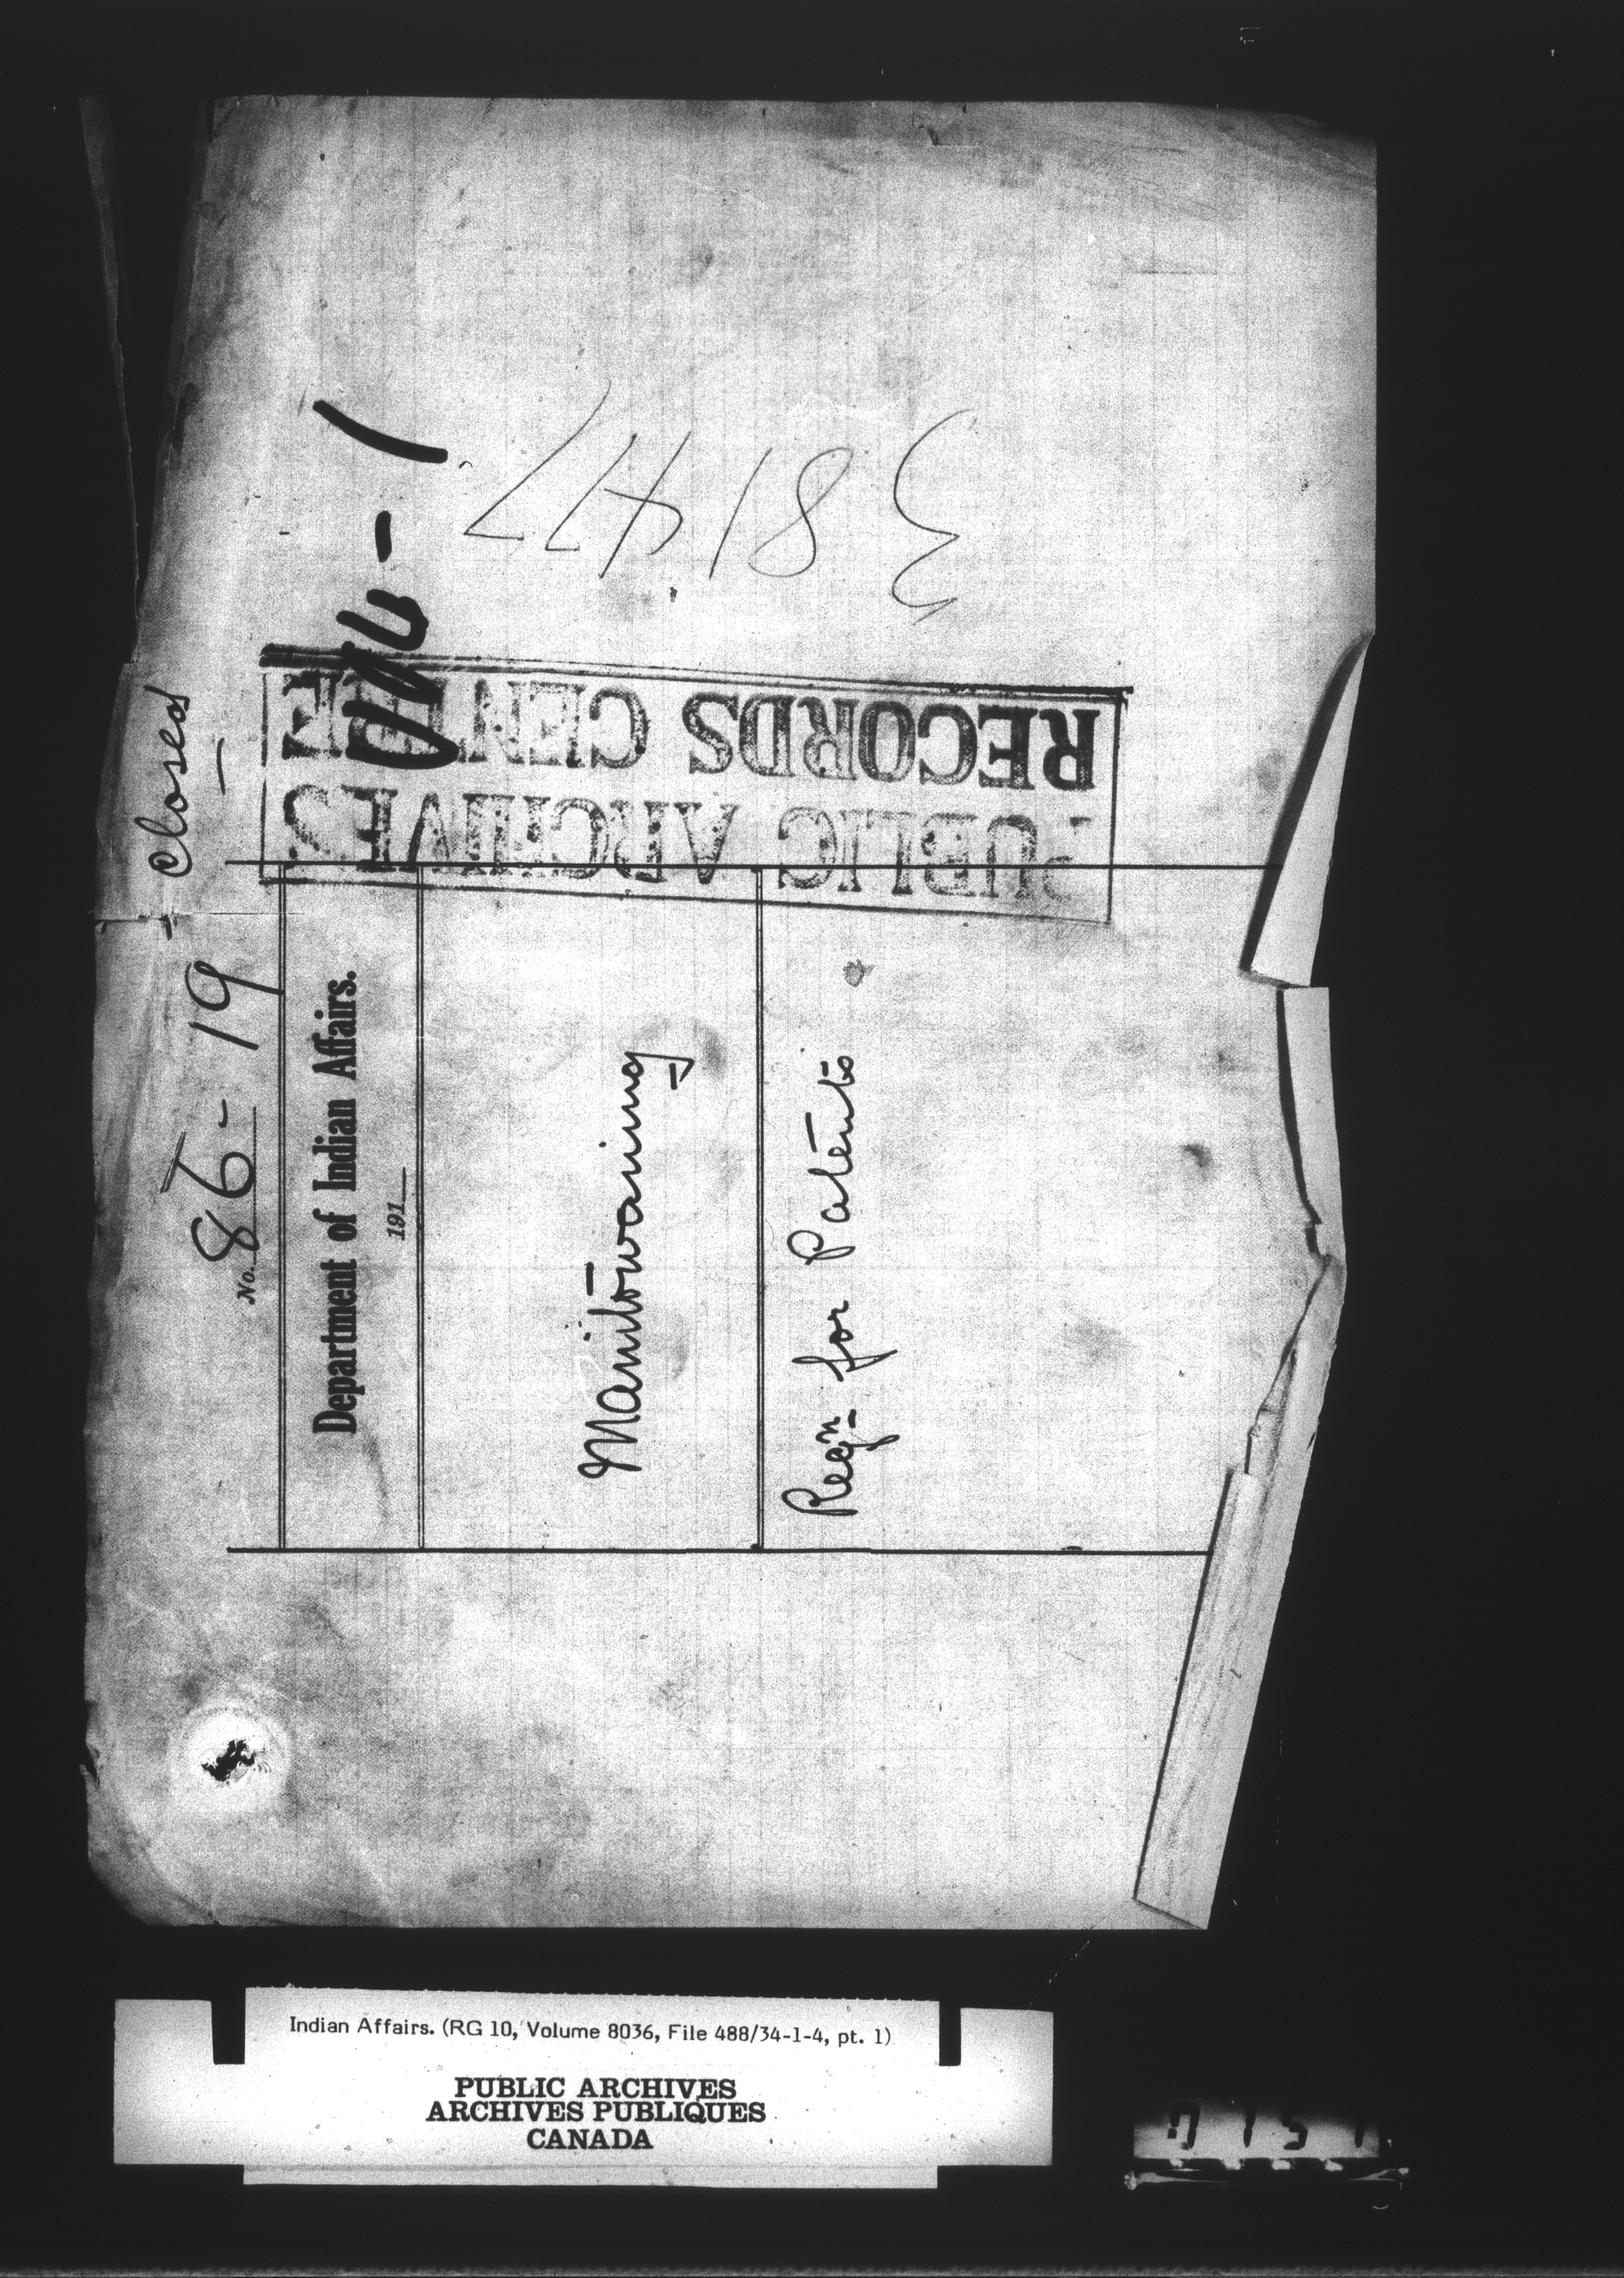 closed
No. 86-19
Department of Indian Affairs.
191
Manitowaning
Reqn for Patents
PUBLIC ARCHIVES
RECORDS CENTRE
Indian Affairs. (RG 10, Volume 8036, File 488/34-1-4, pt. 1)
PUBLIC ARCHIVES
ARCHIVES PUBLIQUES
CANADA